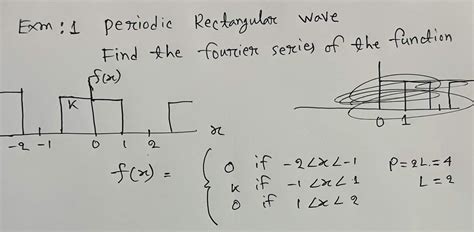 Exm : 1 periodic Rectangular wave
Find the fourier series of the function
f(x)
K
-2 -1 0 1 2 x
0 1
f(x) = { 0 if -2<x<-1 P=2L=4
K if -1<x<1 L=2
0 if 1<x<2